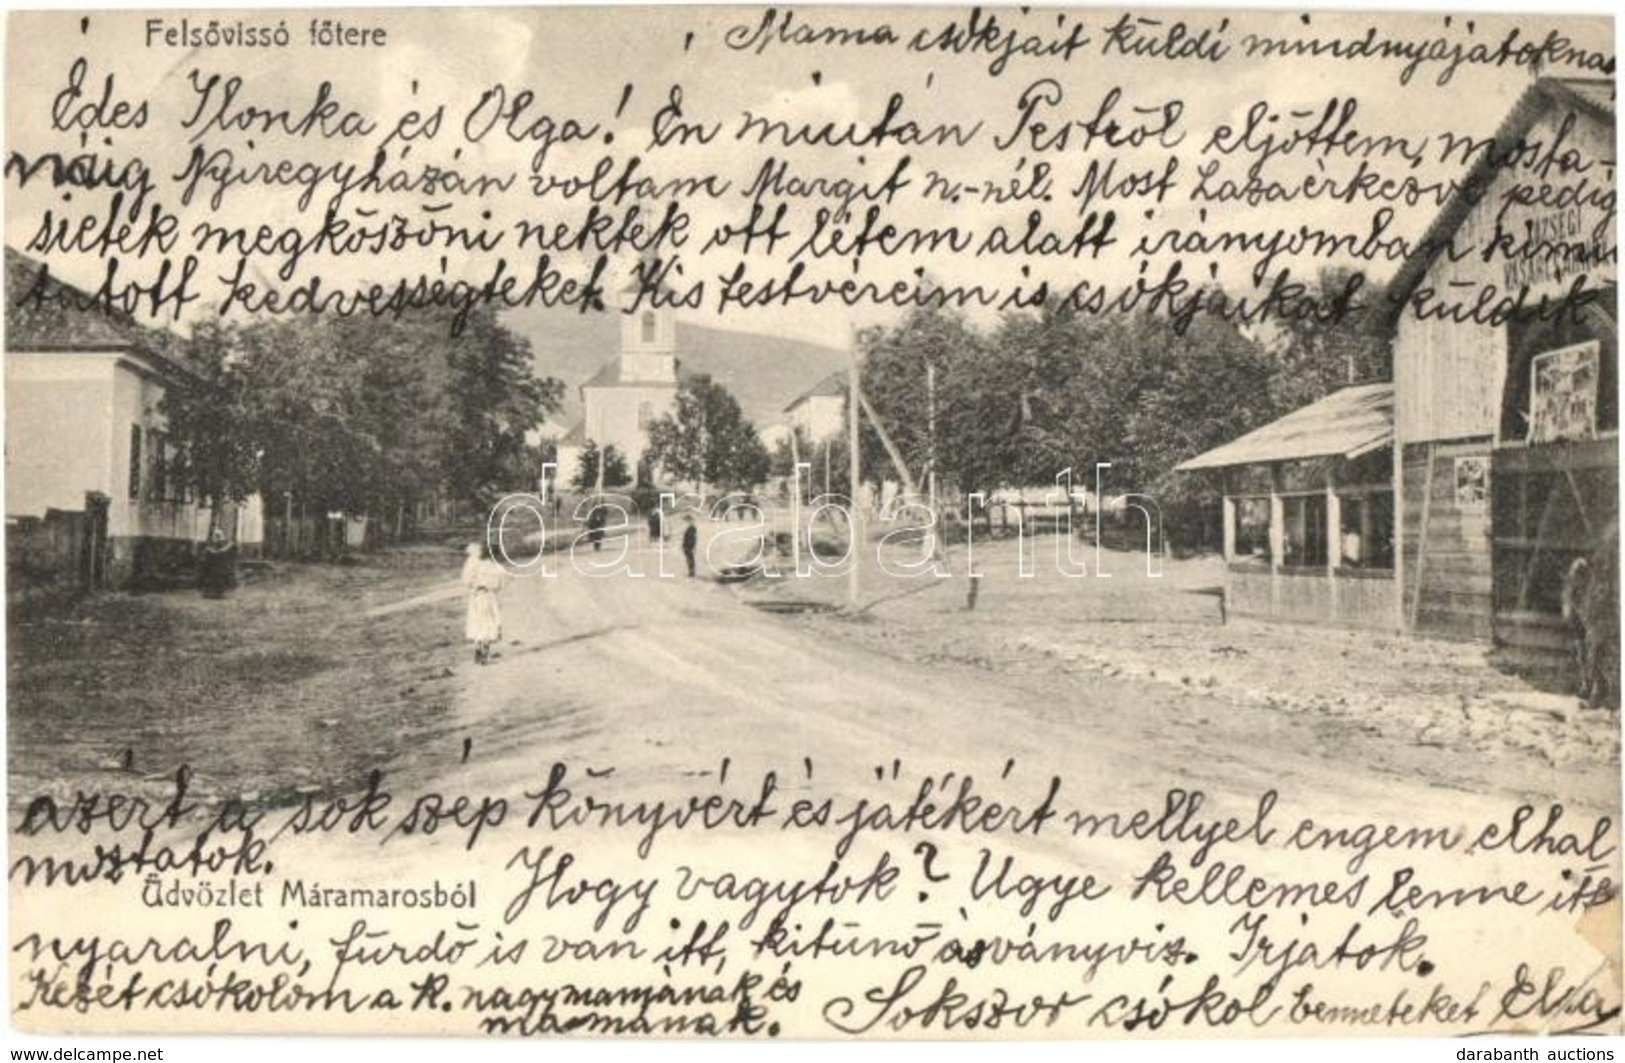 Felsővissó főtere
Mama csókjait küldi mindnyájatoknak
Édes Ilonka és Olga! Én miután Pestről eljöttem, mosta-
náig Nyiregyházán voltam Margit n.-nél. Most hazaérkezve pedig
sietek megköszöni nektek ott létem alatt irányomban kimu
tatott kedvességteket. Kis testvéreim is csókjaikat küldik
KÖZSÉGI
VÁSÁRCSARNOK
darabanth
azért a sok szép könyvért és játékért mellyel engem elhal
moztatok.
Üdvözlet Máramarosból
Hogy vagytok? Ugye kellemes lenne itt
nyaralni, fürdő is van itt, kitünő ásványviz. Irjatok.
Kezét csókolom a k. nagymamjának és
mamának.
Sokszor csókol benneteket Elza
darabanth.com
darabanth auctions